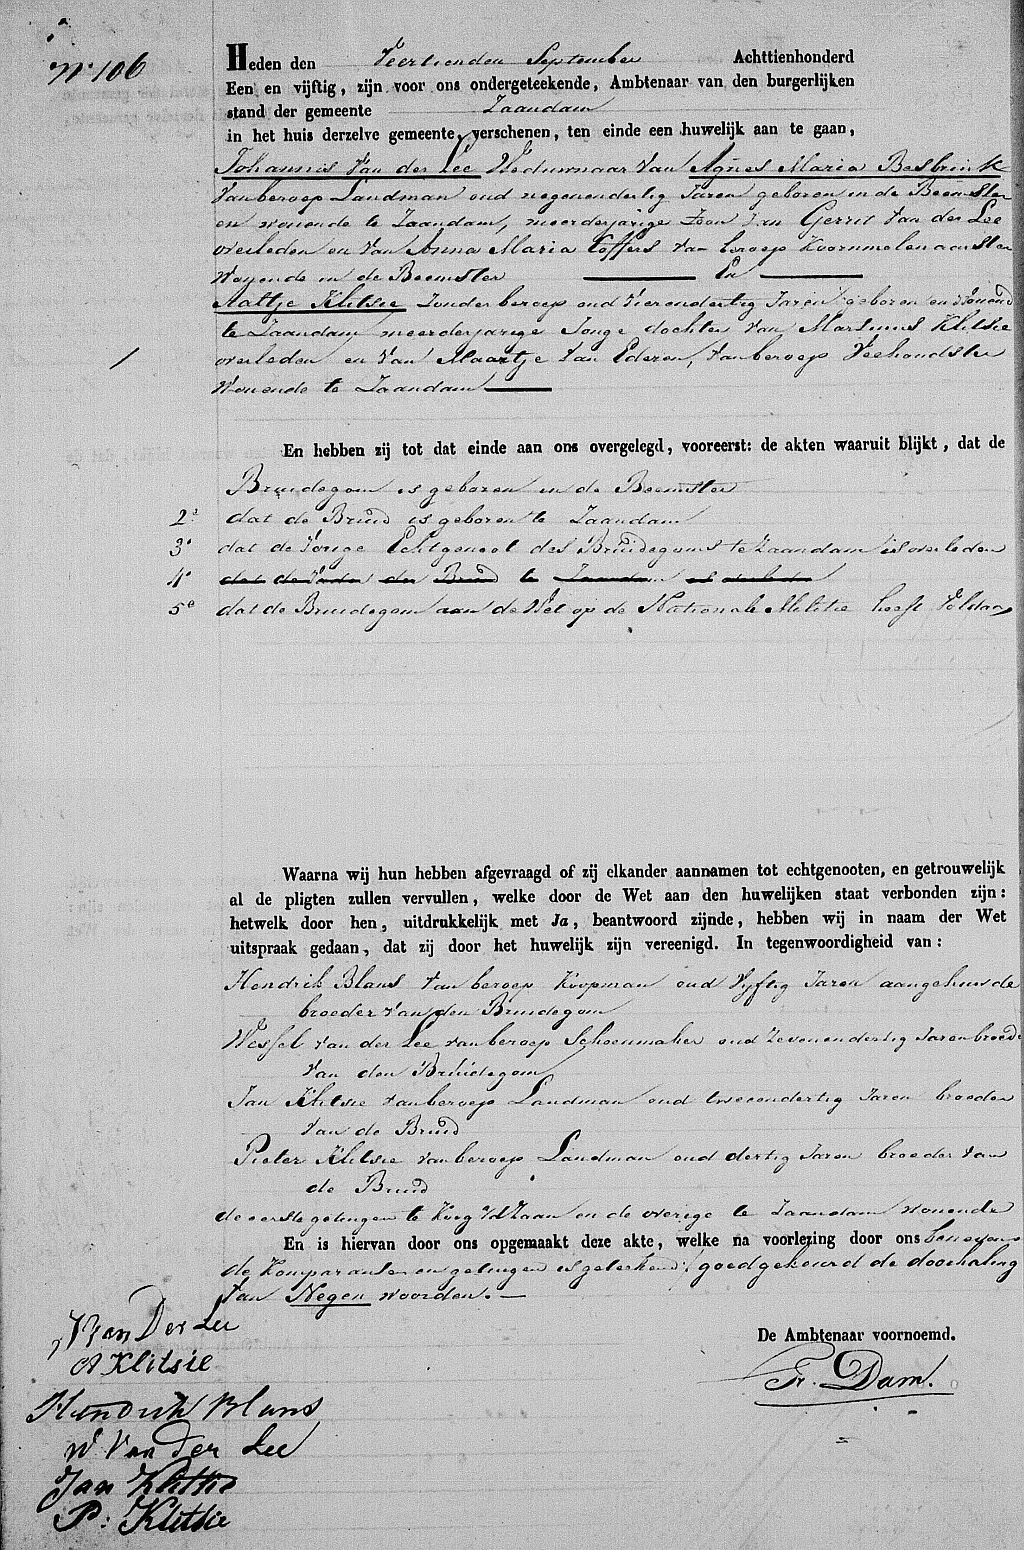 No 106
Heden den Veertienden September Achttienhonderd
Een en vijftig, zijn voor ons ondergeteekende, Ambtenaar van den burgerlijken
stand der gemeente Zaandam
in het huis derzelve gemeente, verschenen, ten einde een huwelijk aan te gaan,
Johannis Van der Lee Weduwnaar Van Agnes Maria Besbrink
Van beroep Landman oud negenendertig Jaren geboren in de Beemster
en wonende te Zaandam, meerderjarige Zoon Van Gerrit Van der Lee
overleden en Van Anna Maria Koffers Van beroep Koornmolenaarster
Wonende in de Beemster En
Aaltje Klitsie Zonder beroep oud Vierendertig Jaren geboren en Wonend
te Zaandam meerderjarige Jonge dochter Van Martinus Klitsie
overleden en Van Maartje Van Ederen, Van beroep Veehoudster
Wonende te Zaandam
En hebben zij tot dat einde aan ons overgelegd, vooreerst: de akten waaruit blijkt, dat de
Bruidegom is geboren in de Beemster
2e dat de Bruid is geboren te Zaandam
3e dat de Vorige Echtgenoot des Bruidegoms te Zaandam is overleden
4e dat de Vader der Bruid te Zaandam is overleden
5e dat de Bruidegom aan de Wet op de Nationale Militie heeft Voldaan
Waarna wij hun hebben afgevraagd of zij elkander aannamen tot echtgenooten, en getrouwelijk
al de pligten zullen vervullen, welke door de Wet aan den huwelijken staat verbonden zijn:
hetwelk door hen, uitdrukkelijk met Ja, beantwoord zijnde, hebben wij in naam der Wet
uitspraak gedaan, dat zij door het huwelijk zijn vereenigd. In tegenwoordigheid van:
Hendrik Blans Van beroep Koopman oud Vyftig Jaren aangehuwde
broeder Van den Bruidegom
Wessel Van der Lee Van beroep Schoenmaker oud Zevenendertig Jaren broeder
Van den Bruidegom
Jan Klitsie Van beroep Landman oud tweeendertig Jaren broeder
Van de Bruid
Pieter Klitsie Van beroep Landman oud dertig Jaren broeder Van
de Bruid
de eerste getuigen te Koog a/d Zaan en de overige te Zaandam wonende
En is hiervan door ons opgemaakt deze akte, welke na voorlezing door ons benevens
de Komparanten en getuigen is geteekend, goedgekeurd de doorhaling
Van Negen woorden.
De Ambtenaar voornoemd.
Fr. Dam.
J Van Der Lee
A Klitsie
Hendrik Blans
W Van der Lee
Jan Klitsie
P: Klitsie